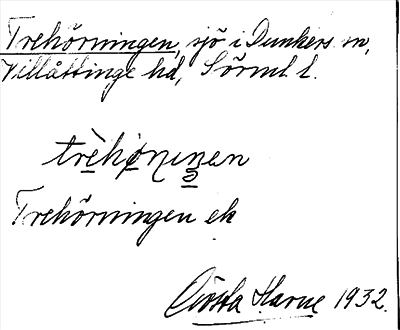 Trehörningen, sjö i Dunkers sn,
Villåttinge hd, Sörml. l.
trèhønıŋen
Trehörningen ek
Gösta Harne 1932.